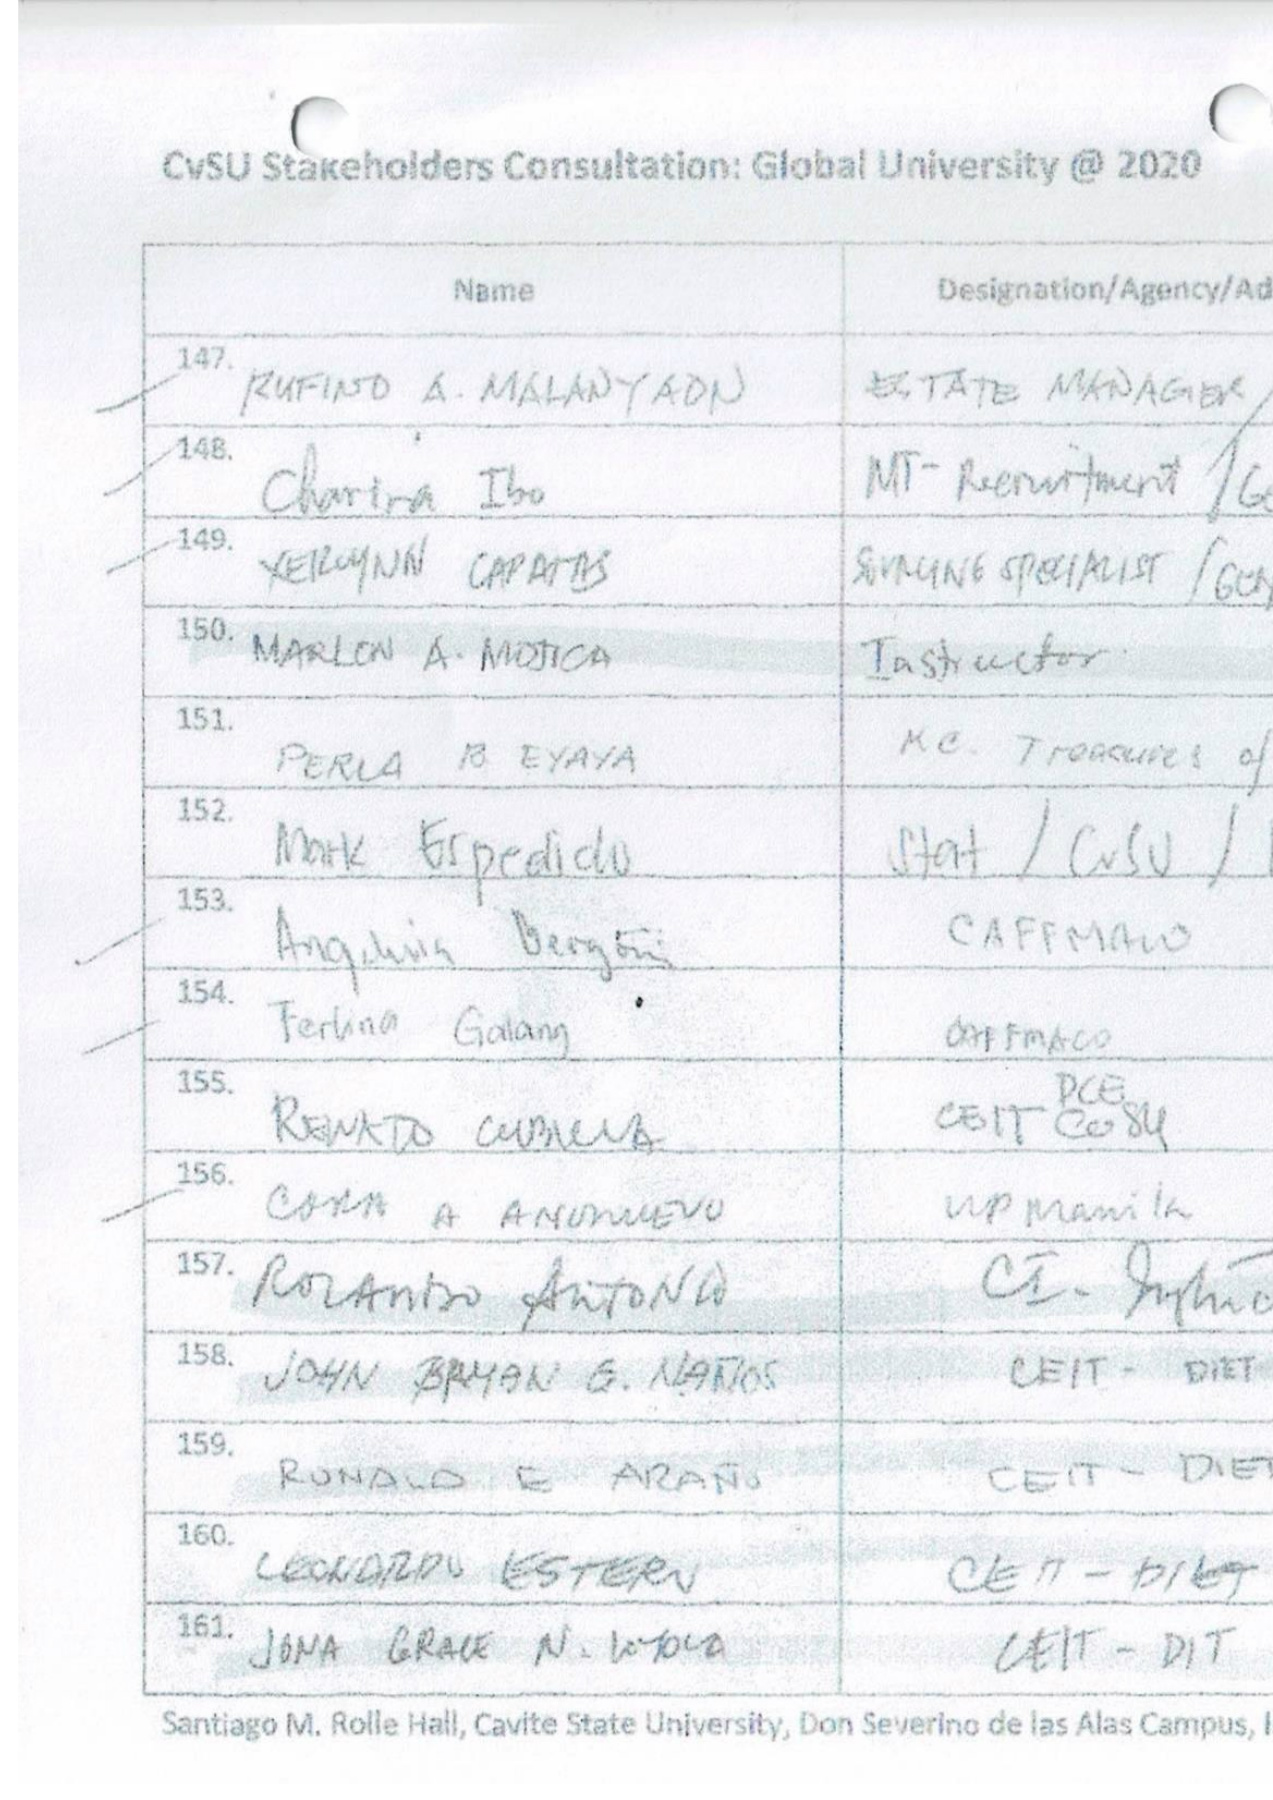 CvSU Stakeholders Consultation: Global University @ 2020
Name
Designation/Agency/Ad
147. RUFINO A. MALANYAON
ESTATE MANAGER /
148. Charina Ibo
MT- Recruitment / Ge
149. XERWYNN CAPATAS
SPECIALIST / GEN
150. MARLON A. MOJICA
Instructor
151. PERLA B EYAYA
Treasures of
152. Mark Espedido
Stat / CvSU /
153. Angelina
CAFFMACO
154. Ferlina Galang
CAFFMACO
155. RENATO CUBILLA
DCE
CEIT CvSU
156. CORA A ANONUEVO
UP Manila
157. ROLANDO ANTONIO
CI -
158. JOHN BRYAN G. NAÑOS
CEIT - DIET
159. RONALD E ARAÑO
CEIT - DIET
160. LEONARDO ESTERN
CEIT - DIET
161. JONA GRACE N. LOYOLA
CEIT - DIT
Santiago M. Rolle Hall, Cavite State University, Don Severino de las Alas Campus, I